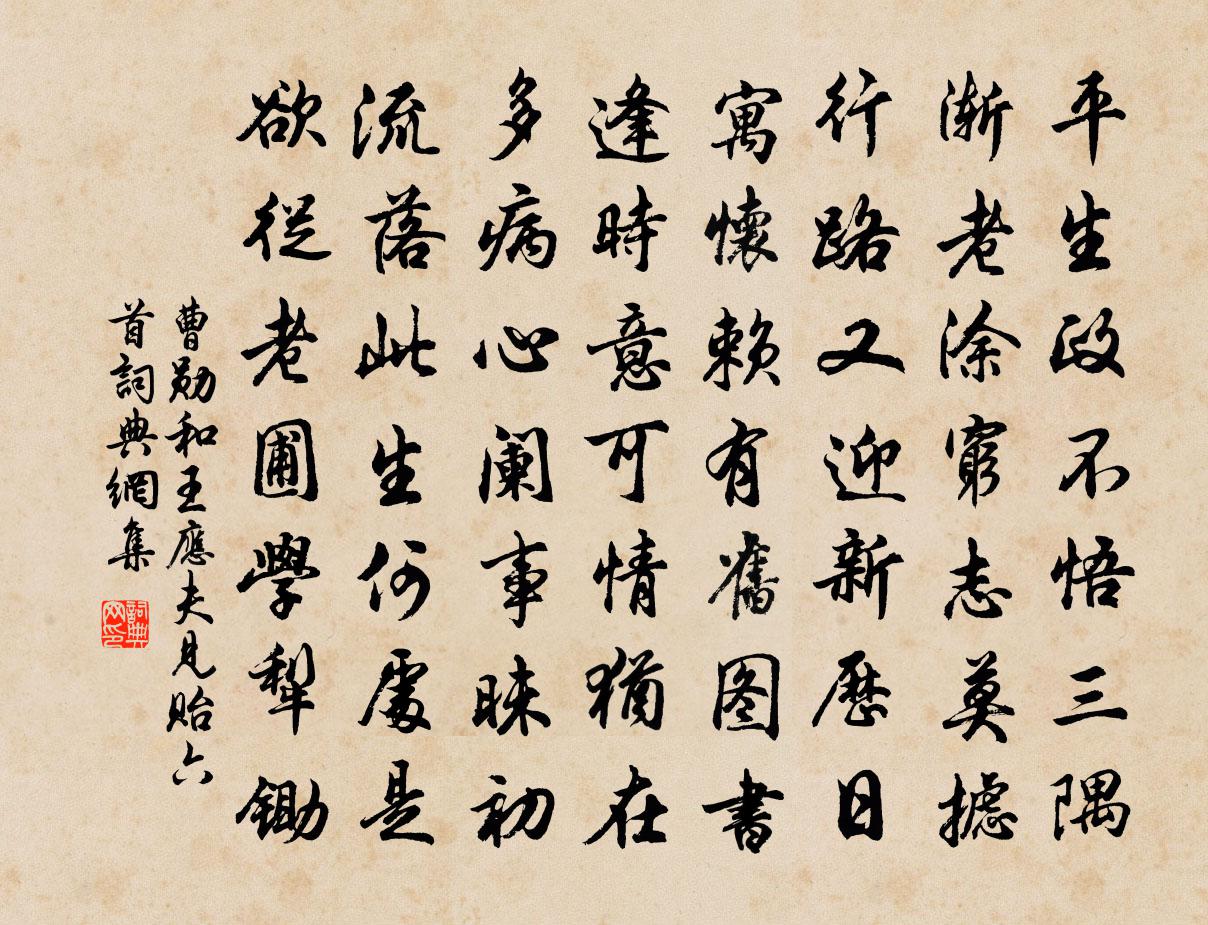 平生政不悟三隅
漸老涂窮志莫攄
行路又迎新曆日
寓懷賴有舊图書
逢時意可情猶在
多病心阑事昧初
流落此生何處是
欲從老圃學犂鋤
曹勛和王應夫見貽六
首詞典網集
詞典网印